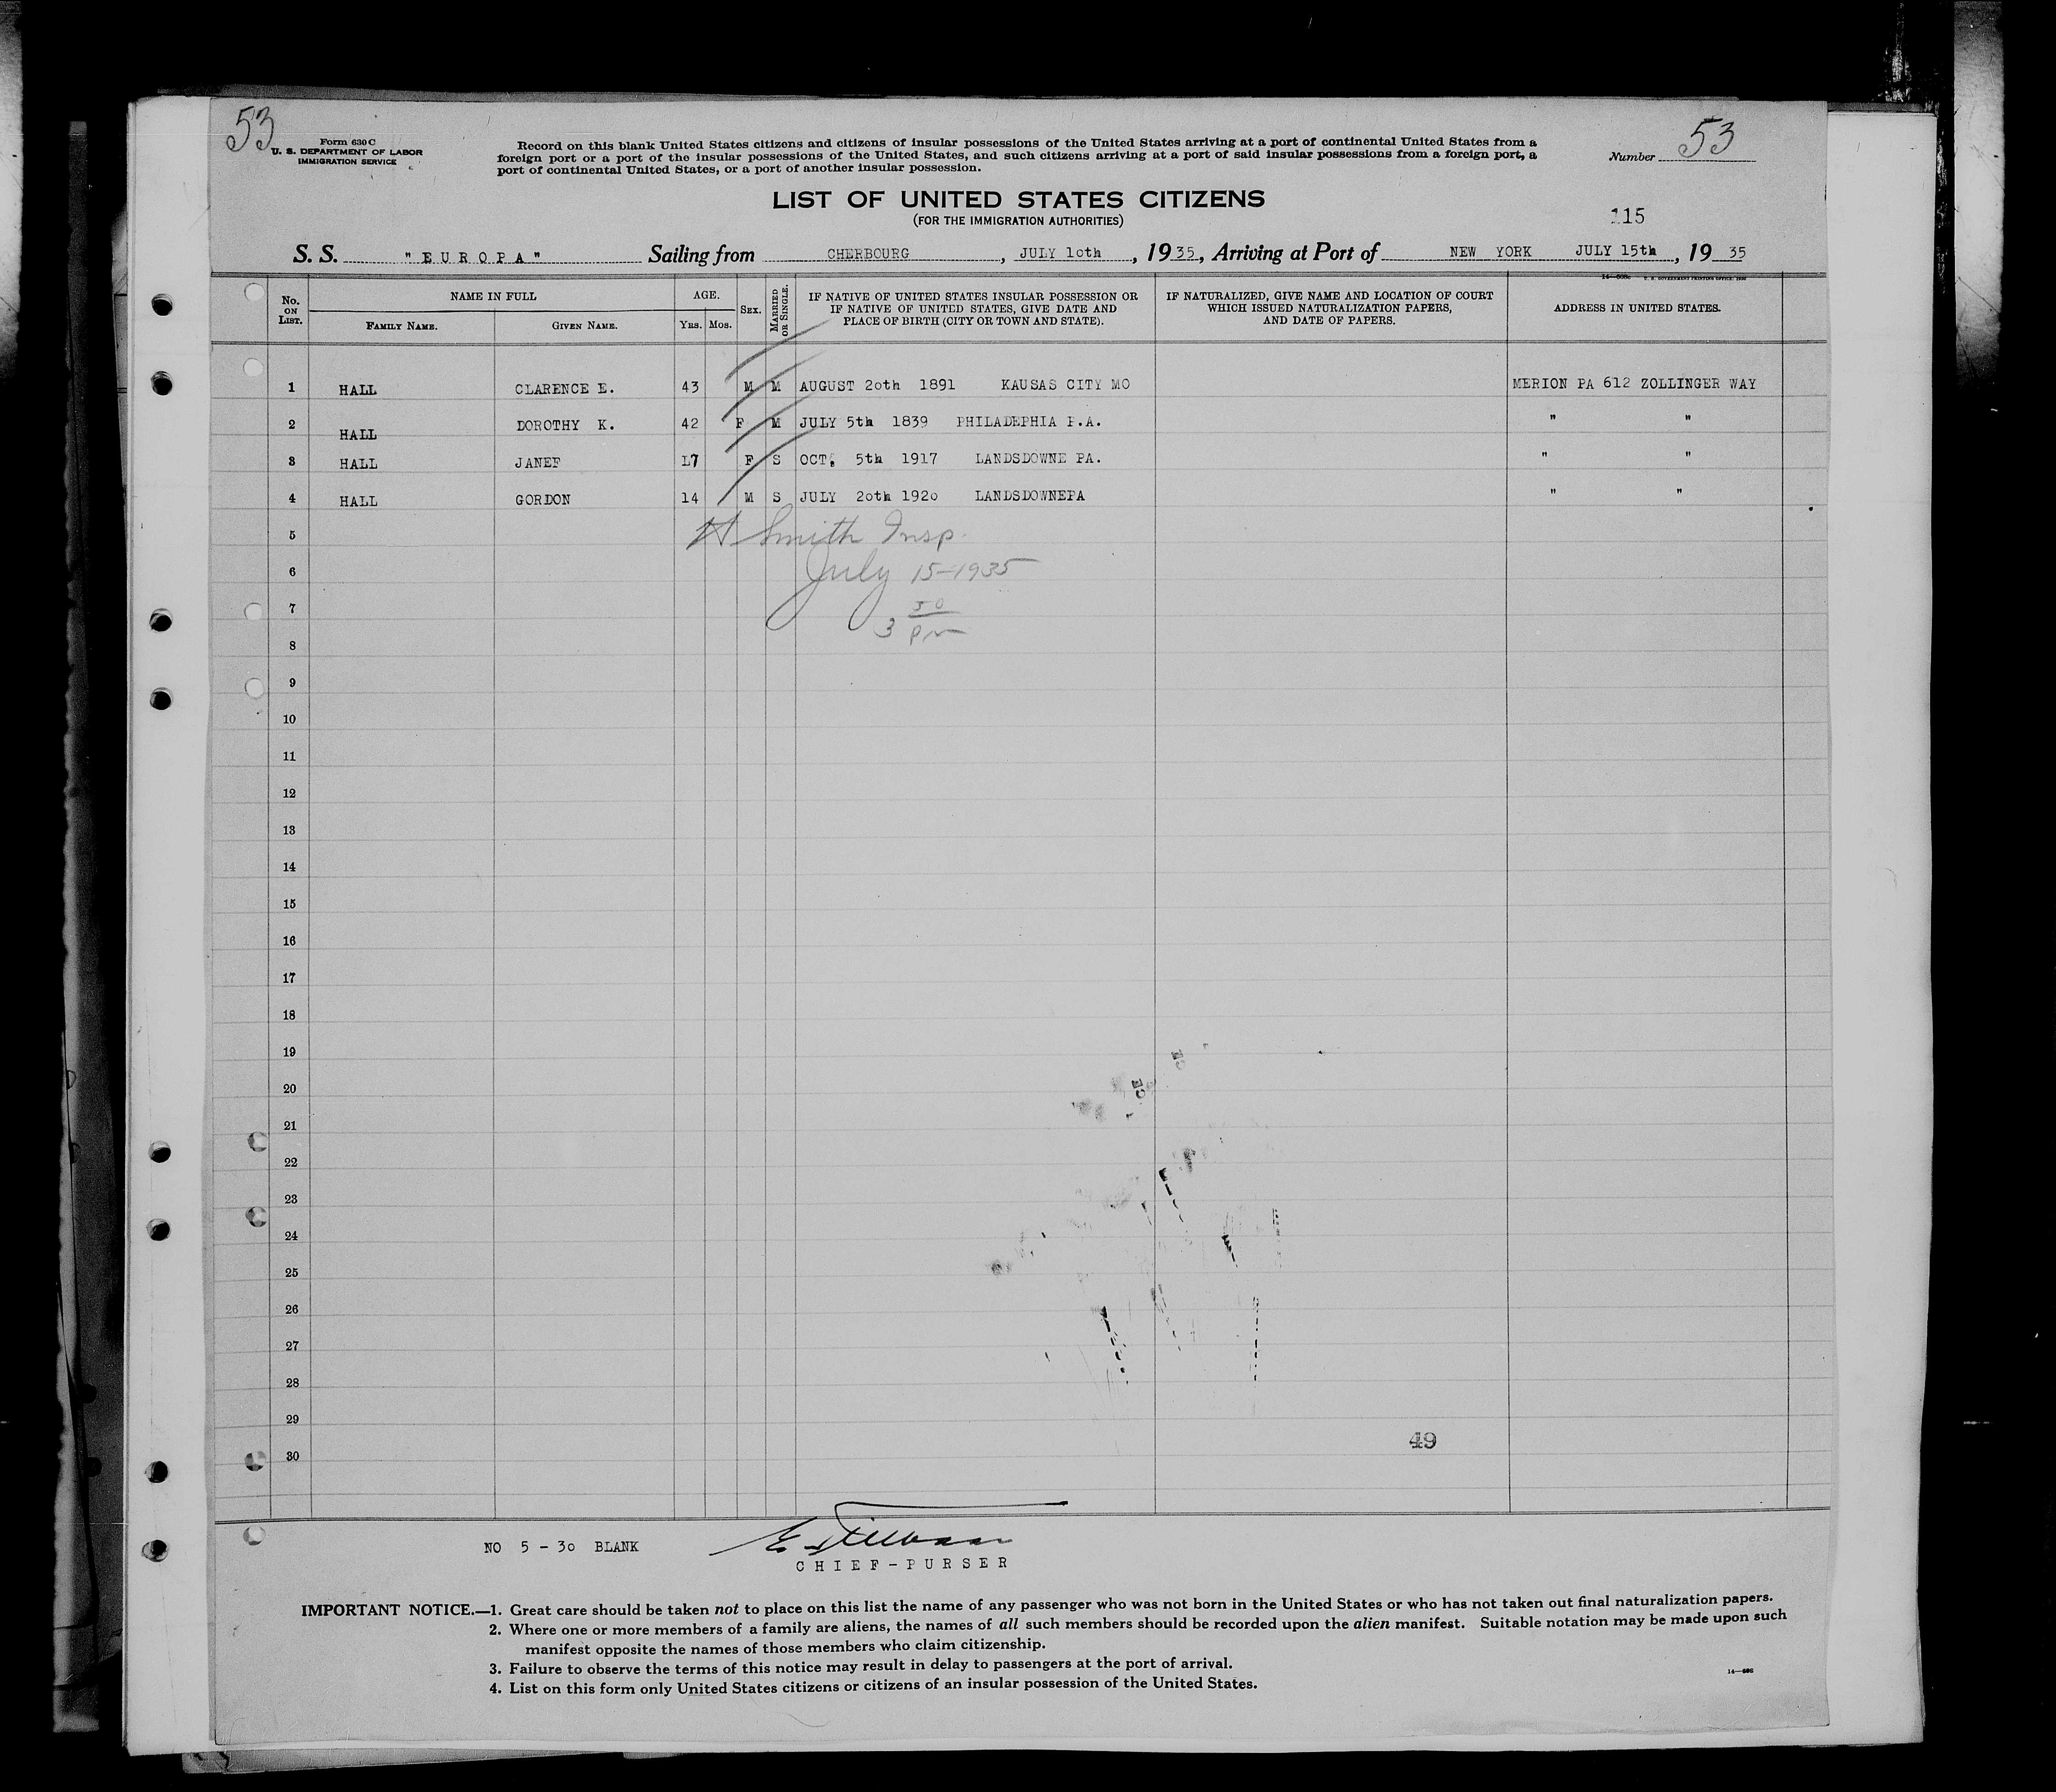 53
Form 630 C
U. S. DEPARTMENT OF LABOR
IMMIGRATION SERVICE
Record on this blank United States citizens and citizens of insular possessions of the United States arriving at a port of continental United States from a
foreign port or a port of the insular possessions of the United States, and such citizens arriving at a port of said insular possessions from a foreign port, a
port of continental United States, or a port of another insular possession.
Number 53
LIST OF UNITED STATES CITIZENS
(FOR THE IMMIGRATION AUTHORITIES)
115
S. S. "EUROPA" Sailing from CHERBOURG, JULY 1oth, 1935, Arriving at Port of NEW YORK JULY 15th, 19 35
No. ON LIST. NAME IN FULL AGE. SEX. MARRIED OR SINGLE. IF NATIVE OF UNITED STATES INSULAR POSSESSION OR IF NATIVE OF UNITED STATES, GIVE DATE AND PLACE OF BIRTH (CITY OR TOWN AND STATE). IF NATURALIZED, GIVE NAME AND LOCATION OF COURT WHICH ISSUED NATURALIZATION PAPERS, AND DATE OF PAPERS. ADDRESS IN UNITED STATES.
FAMILY NAME. GIVEN NAME. YRS. MOS.
1 HALL CLARENCE E. 43 M M AUGUST 2oth 1891 KAUSAS CITY MO MERION PA 612 ZOLLINGER WAY
2 HALL DOROTHY K. 42 F M JULY 5th 1839 PHILADEPHIA P.A. " "
3 HALL JANEF 17 F S OCT. 5th 1917 LANDSDOWNE PA. " "
4 HALL GORDON 14 M S JULY 2oth 192o LANDSDOWNEPA " "
5 Smith Insp.
6 July 15-1935
7 50
8 3 pm
9
10
11
12
13
14
15
16
17
18
19
20
21
22
23
24
25
26
27
28
29
49
30
NO 5 - 3o BLANK
CHIEF-PURSER
IMPORTANT NOTICE.—1. Great care should be taken not to place on this list the name of any passenger who was not born in the United States or who has not taken out final naturalization papers.
2. Where one or more members of a family are aliens, the names of all such members should be recorded upon the alien manifest. Suitable notation may be made upon such
manifest opposite the names of those members who claim citizenship.
3. Failure to observe the terms of this notice may result in delay to passengers at the port of arrival.
4. List on this form only United States citizens or citizens of an insular possession of the United States.